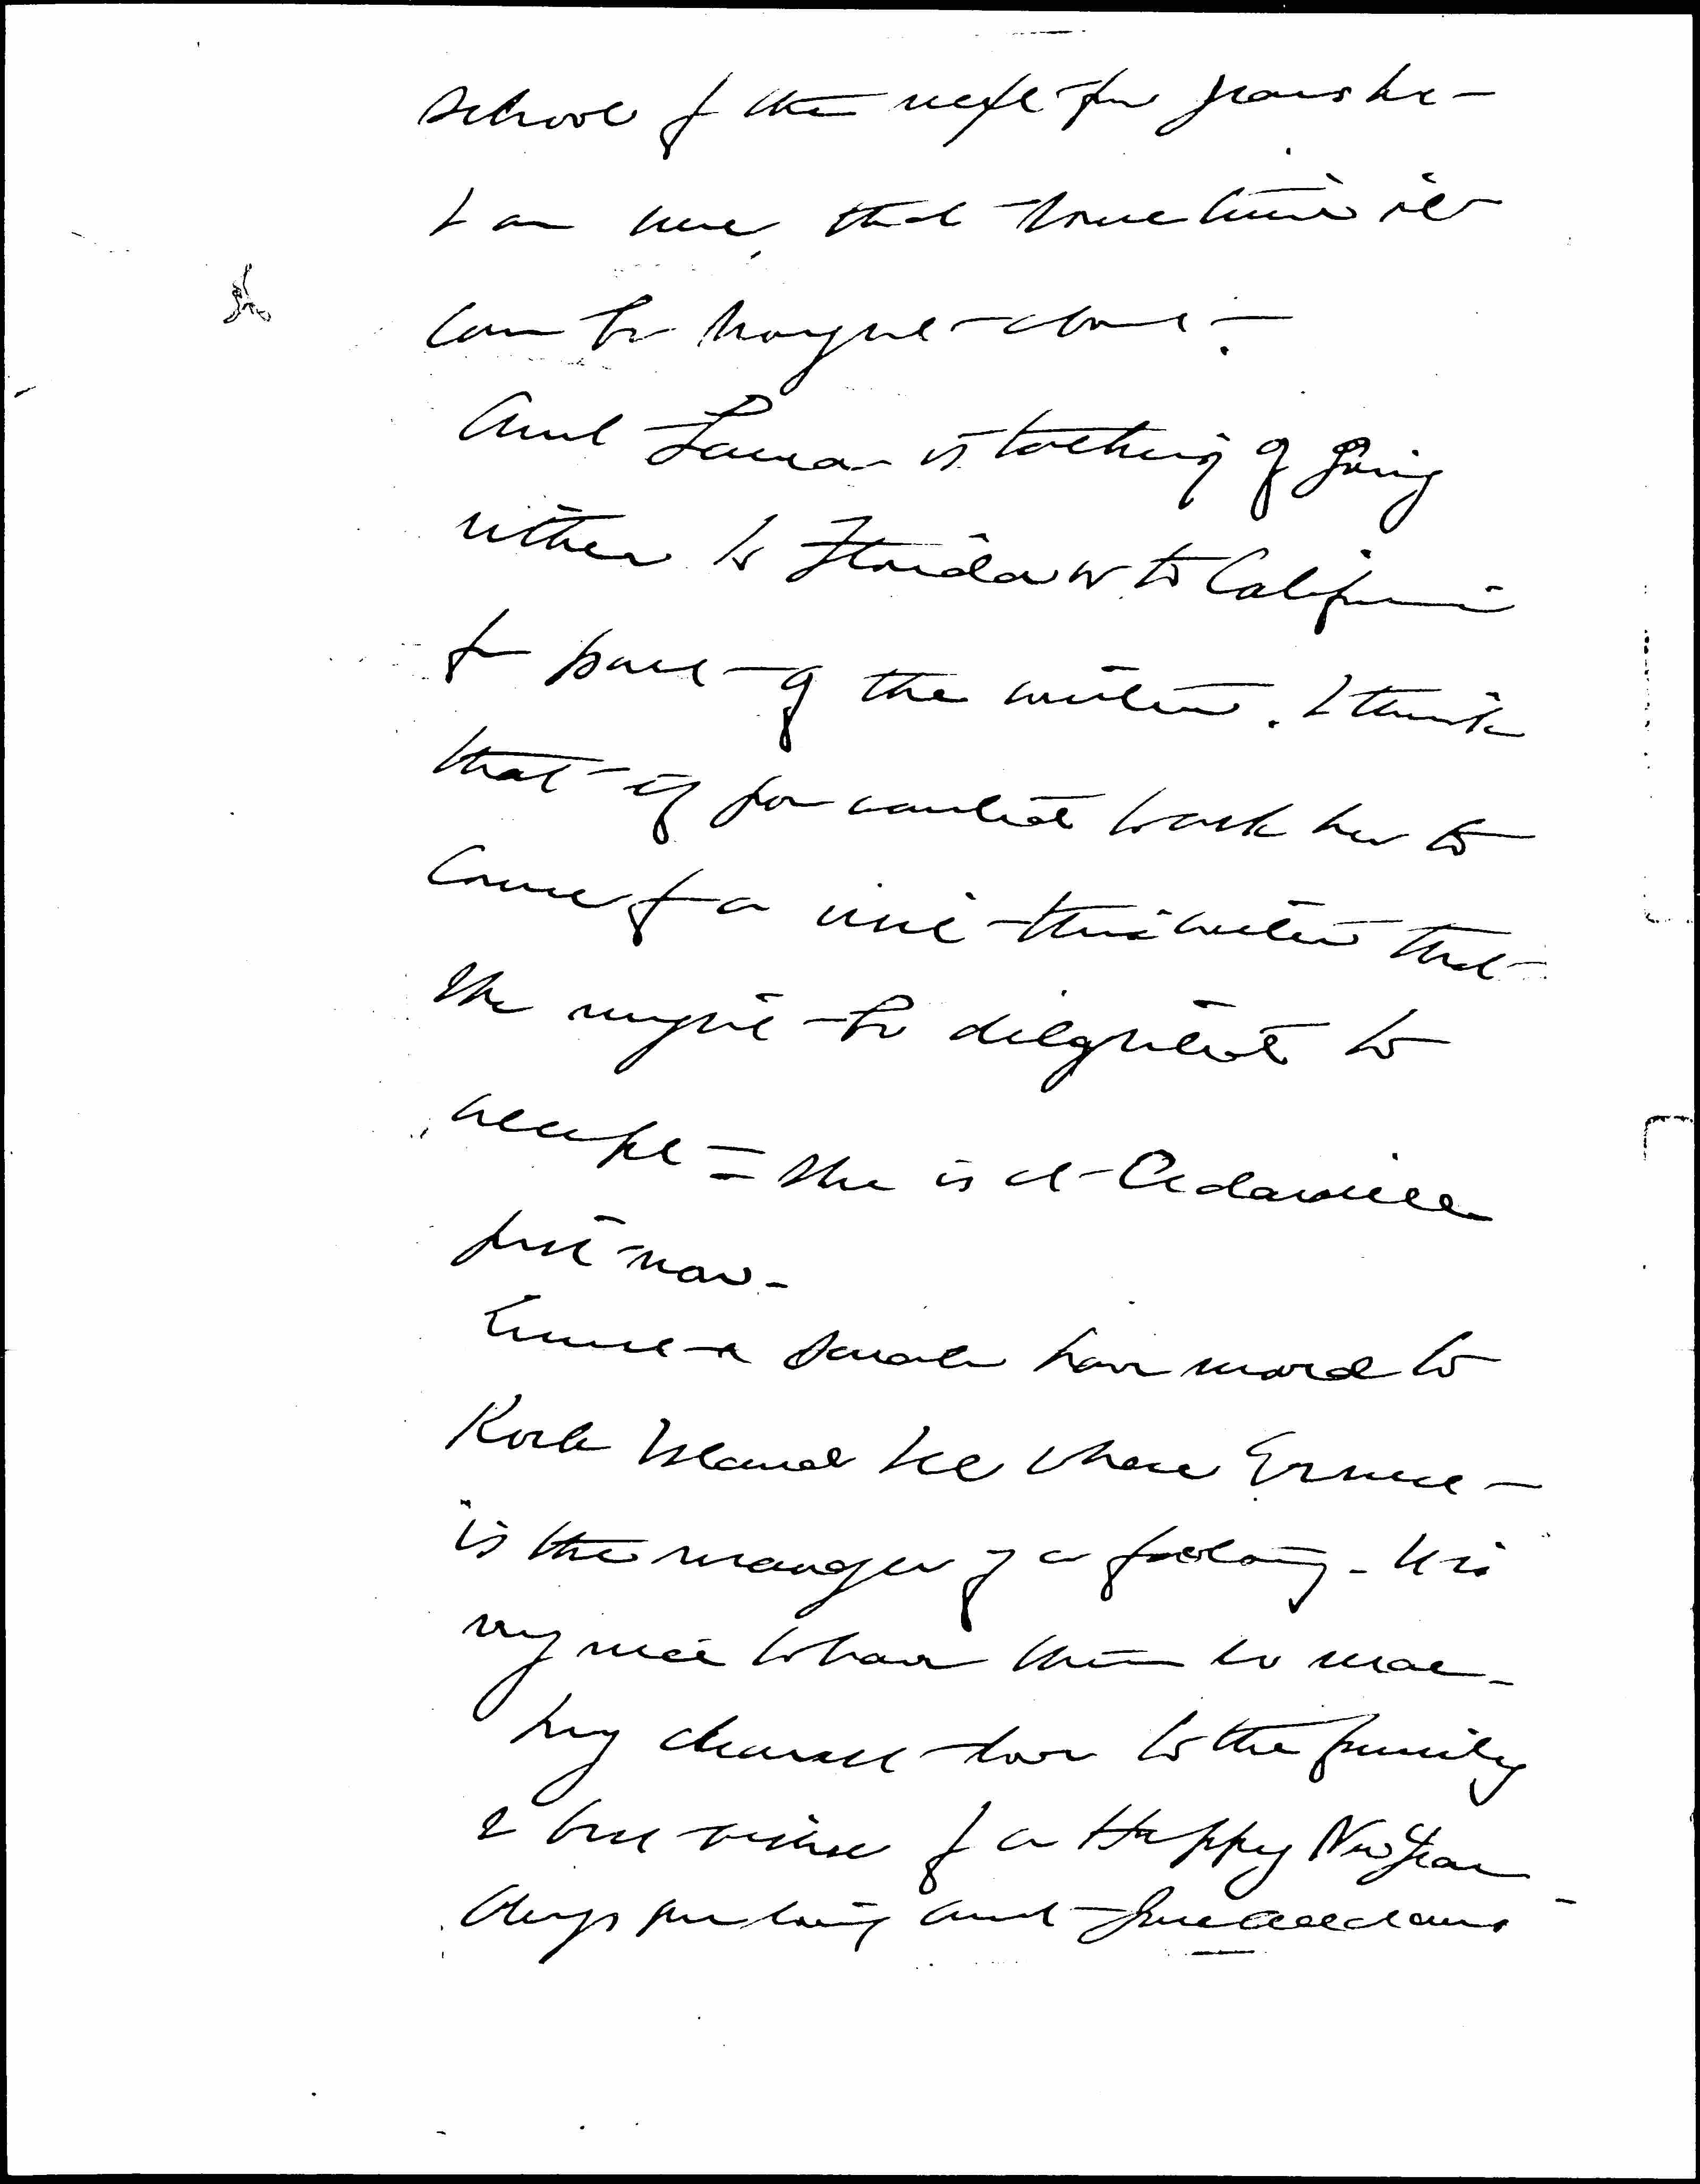 school for the next few years but
I am sure that some time it
can be
Aunt Laura is talking of going
either to Florida or to California
for part of the winter. I think
that if you wanted to ask her to
come for a visit this winter that
she might be delighted to
accept = She is at Cedarville
just now -
& Sarah have moved to
Rock Island Ill where
is the manager of a factory - It is
very nice to have them so near -
My dearest love to the family
& best wishes for a Happy New Year
Always your loving aunt Jane Addams